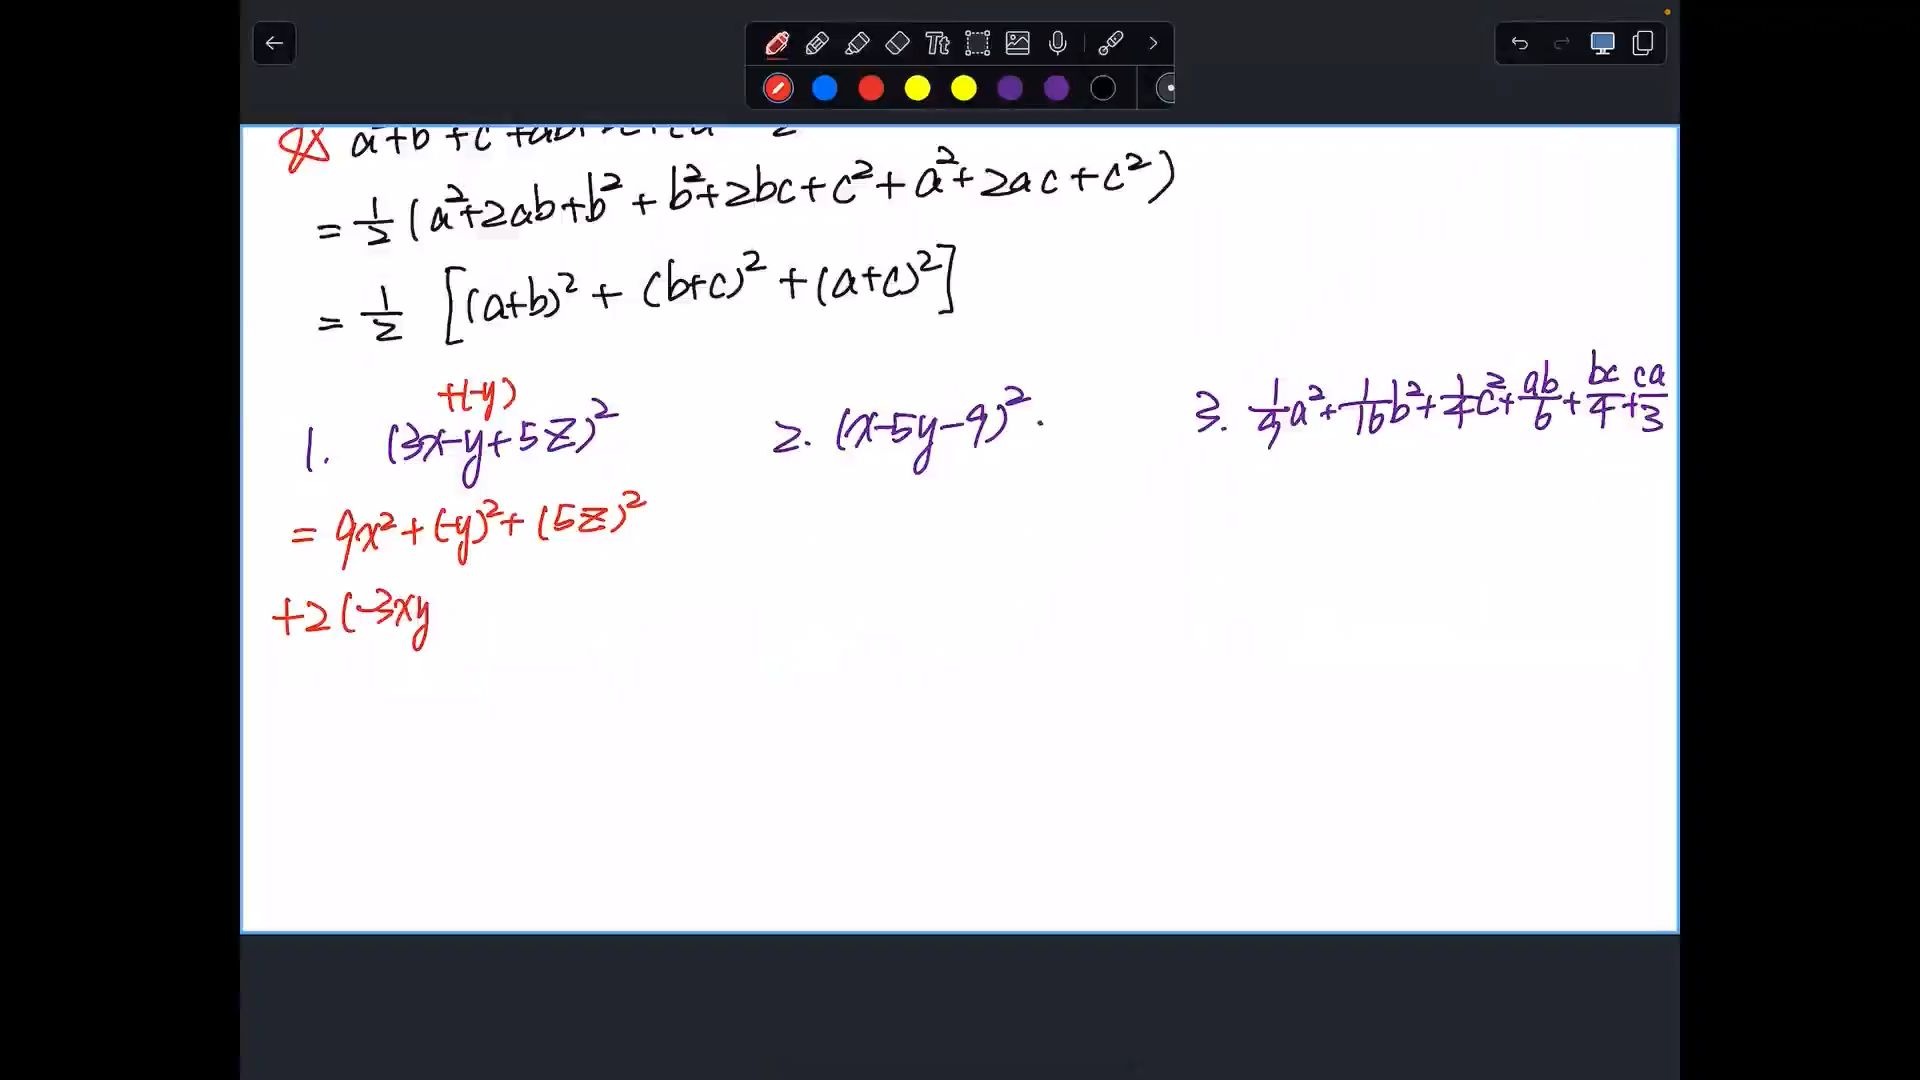 = 1/2 (a²+2ab+b² + b²+2bc+c²+a²+2ac+c²)
= 1/2 [(a+b)² + (b+c)² + (a+c)²]
+(-y)
1. (3x-y+5z)²
2. (x-5y-9)².
3. 1/9 a²+1/16 b²+1/4 c²+ab/6+bc/4+ca/3
= 9x²+(-y)²+(5z)²
+2(-3xy
Tt